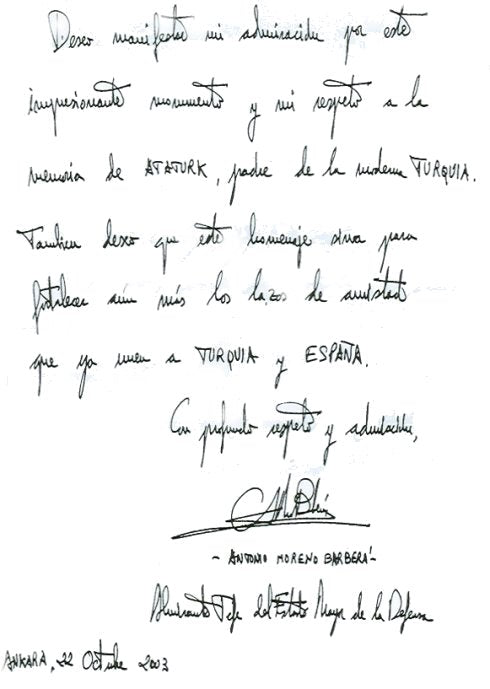 Deseo manifestar mi admiración por este
impresionante monumento y mi respeto a la
memoria de ATATURK, padre de la moderna TURQUIA.
Tambien deseo que este homenaje sirva para
fortalecer aún más los lazos de amistad
que ya unen a TURQUIA y ESPAÑA.
Con profundo respeto y admiración,
- ANTONIO MORENO BARBERÁ -
Almirante Jefe del Estado Mayor de la Defensa
ANKARA, 22 Octubre 2003